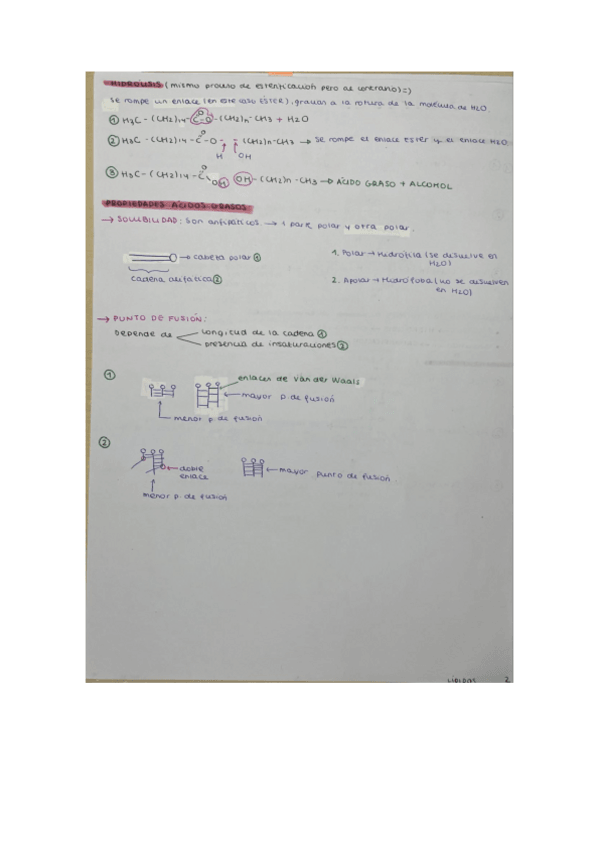 HIDRÓLISIS (mismo proceso de esterificación pero al contrario)=)
se rompe un enlace (en este caso ÉSTER), gracias a la rotura de la molécula de H2O.
① H3C - (CH2)14 - C - O - (CH2)n - CH3 + H2O
O
② H3C - (CH2)14 - C - O - - (CH2)n - CH3 → se rompe el enlace éster y el enlace H2O
O
H OH
③ H3C - (CH2)14 - C OH OH - (CH2)n - CH3 → ÁCIDO GRASO + ALCOHOL
O
PROPIEDADES ÁCIDOS GRASOS
→ SOLUBILIDAD: son anfipáticos → 1 parte polar y otra polar.
→ cabeza polar ①
cadena alifática ②
1. Polar → Hidrófila (se disuelve en H2O)
2. Apolar → Hidrófoba (no se disuelven en H2O)
→ PUNTO DE FUSIÓN:
Depende de
longitud de la cadena ①
presencia de insaturaciones ②
①
enlaces de Van der Waals
mayor p. de fusión
menor p. de fusión
②
doble
enlace
mayor punto de fusión.
menor p. de fusión
LÍPIDOS 2